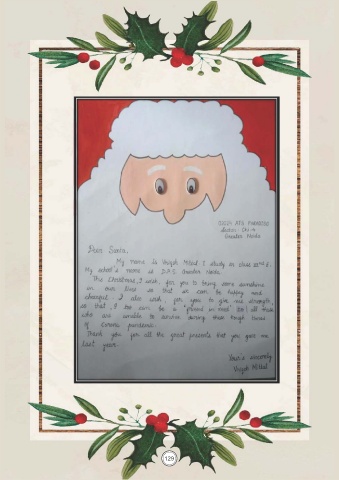 Sector Chi-4
Greater Noida
Dear Santa,
My name is I study in class
My school's name is D.P.S. Greater Noida.
This Christmas, I wish for you to bring some sunshine
in our lives so that we can be happy and
I also wish for you to give me strength,
so that I too can be a friend in need to all those
who are unable to during these tough times
of Corona pandemic.
Thank you for all the great presents that you gave me
last year.
Your's sincerely
129